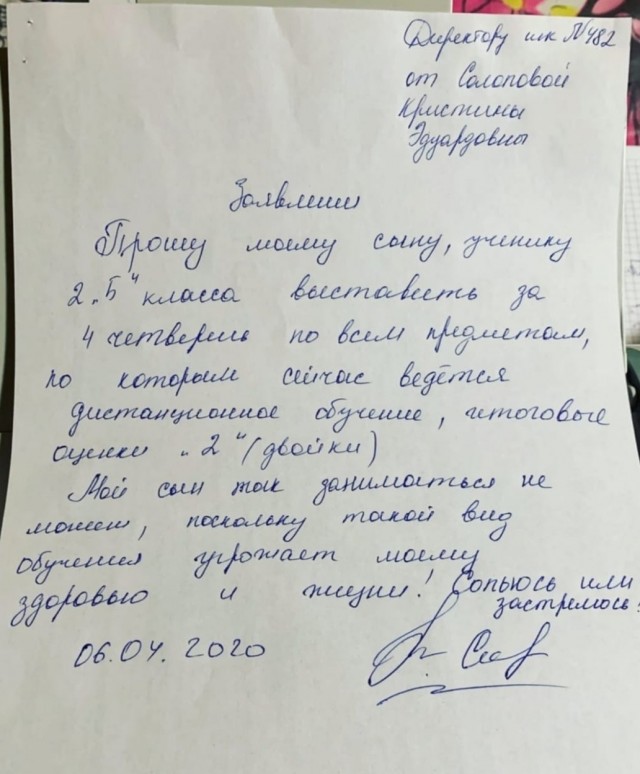 Директору шк №482
от Солоповой
Кристины
Эдуардовны
Заявление
Прошу моему сыну, ученику
2 „Б" класса выставить за
4 четверть по всем предметам,
по которым сейчас ведётся
дистанционное обучение, итоговые
оценки „2" (двойки)
Мой сын так заниматься не
может, поскольку такой вид
обучения угрожает моему
здоровью и жизни! Сопьюсь или
застрелюсь.
06.04.2020